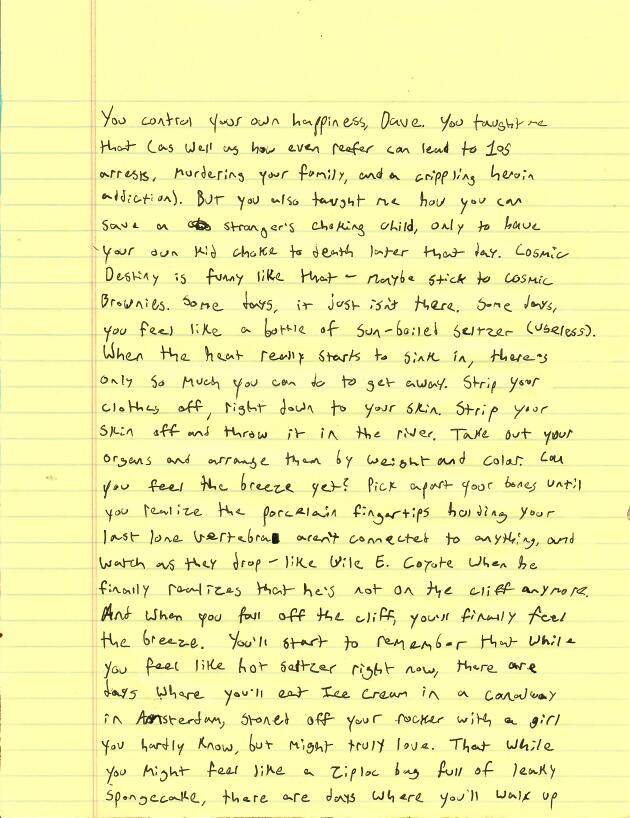 You control your own happiness, Dave. You taught me
that (as well as how even reefer can lead to 105
arrests, murdering your family, and a crippling heroin
addiction). But you also taught me how you can
save a stranger's choking child, only to have
your own kid choke to death later that day. Cosmic
Destiny is funny like that – maybe stick to cosmic
Brownies. Some days, it just isn't there. Some days,
you feel like a bottle of sun-boiled seltzer (useless).
When the heat really starts to sink in, there's
only so much you can do to get away. Strip your
clothes off, right down to your skin. Strip your
skin off and throw it in the river. Take out your
organs and arrange them by weight and color. Can
you feel the breeze yet? Pick apart your bones until
you realize the porcelain fingertips holding your
last lone vertebra aren't connected to anything, and
watch as they drop – like Wile E. Coyote when he
finally realizes that he's not on the cliff anymore.
And when you fall off the cliff, you'll finally feel
the breeze. You'll start to remember that while
you feel like hot seltzer right now, there are
days where you'll eat Ice Cream in a canalway
in Amsterdam, stoned off your rocker with a girl
you hardly know, but might truly love. That while
you might feel like a Ziploc bag full of leaky
spongecake, there are days where you'll walk up